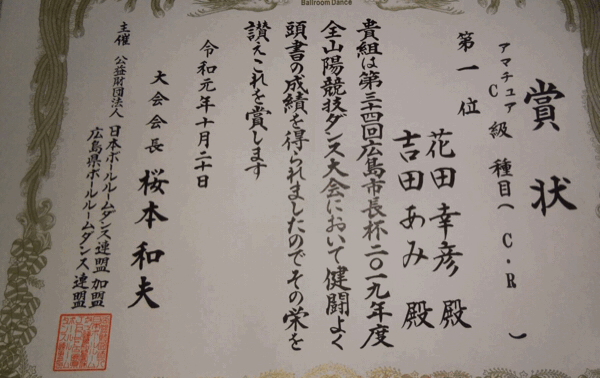 Ballroom Dance
賞状
アマチュア C級 種目( C・R )
第一位
花田幸彦 殿
吉田あみ 殿
貴組は第三十四回広島市長杯二〇一九年度
全山陽競技ダンス大会において健闘よく
頭書の成績を得られましたのでその栄を
讃えこれを賞します
令和元年十月二十日
大会会長 桜本和夫
主催 公益財団法人 日本ボールルームダンス連盟 加盟
広島県ボールルームダンス連盟